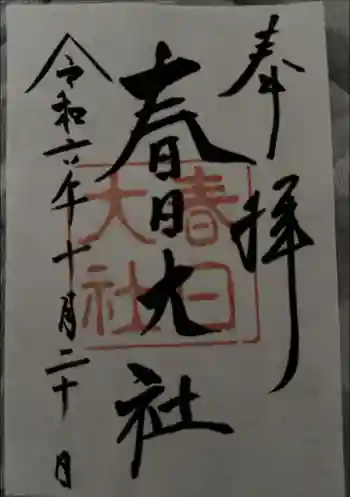 奉拝
春日大社
春日大社
令和六年十月二十日